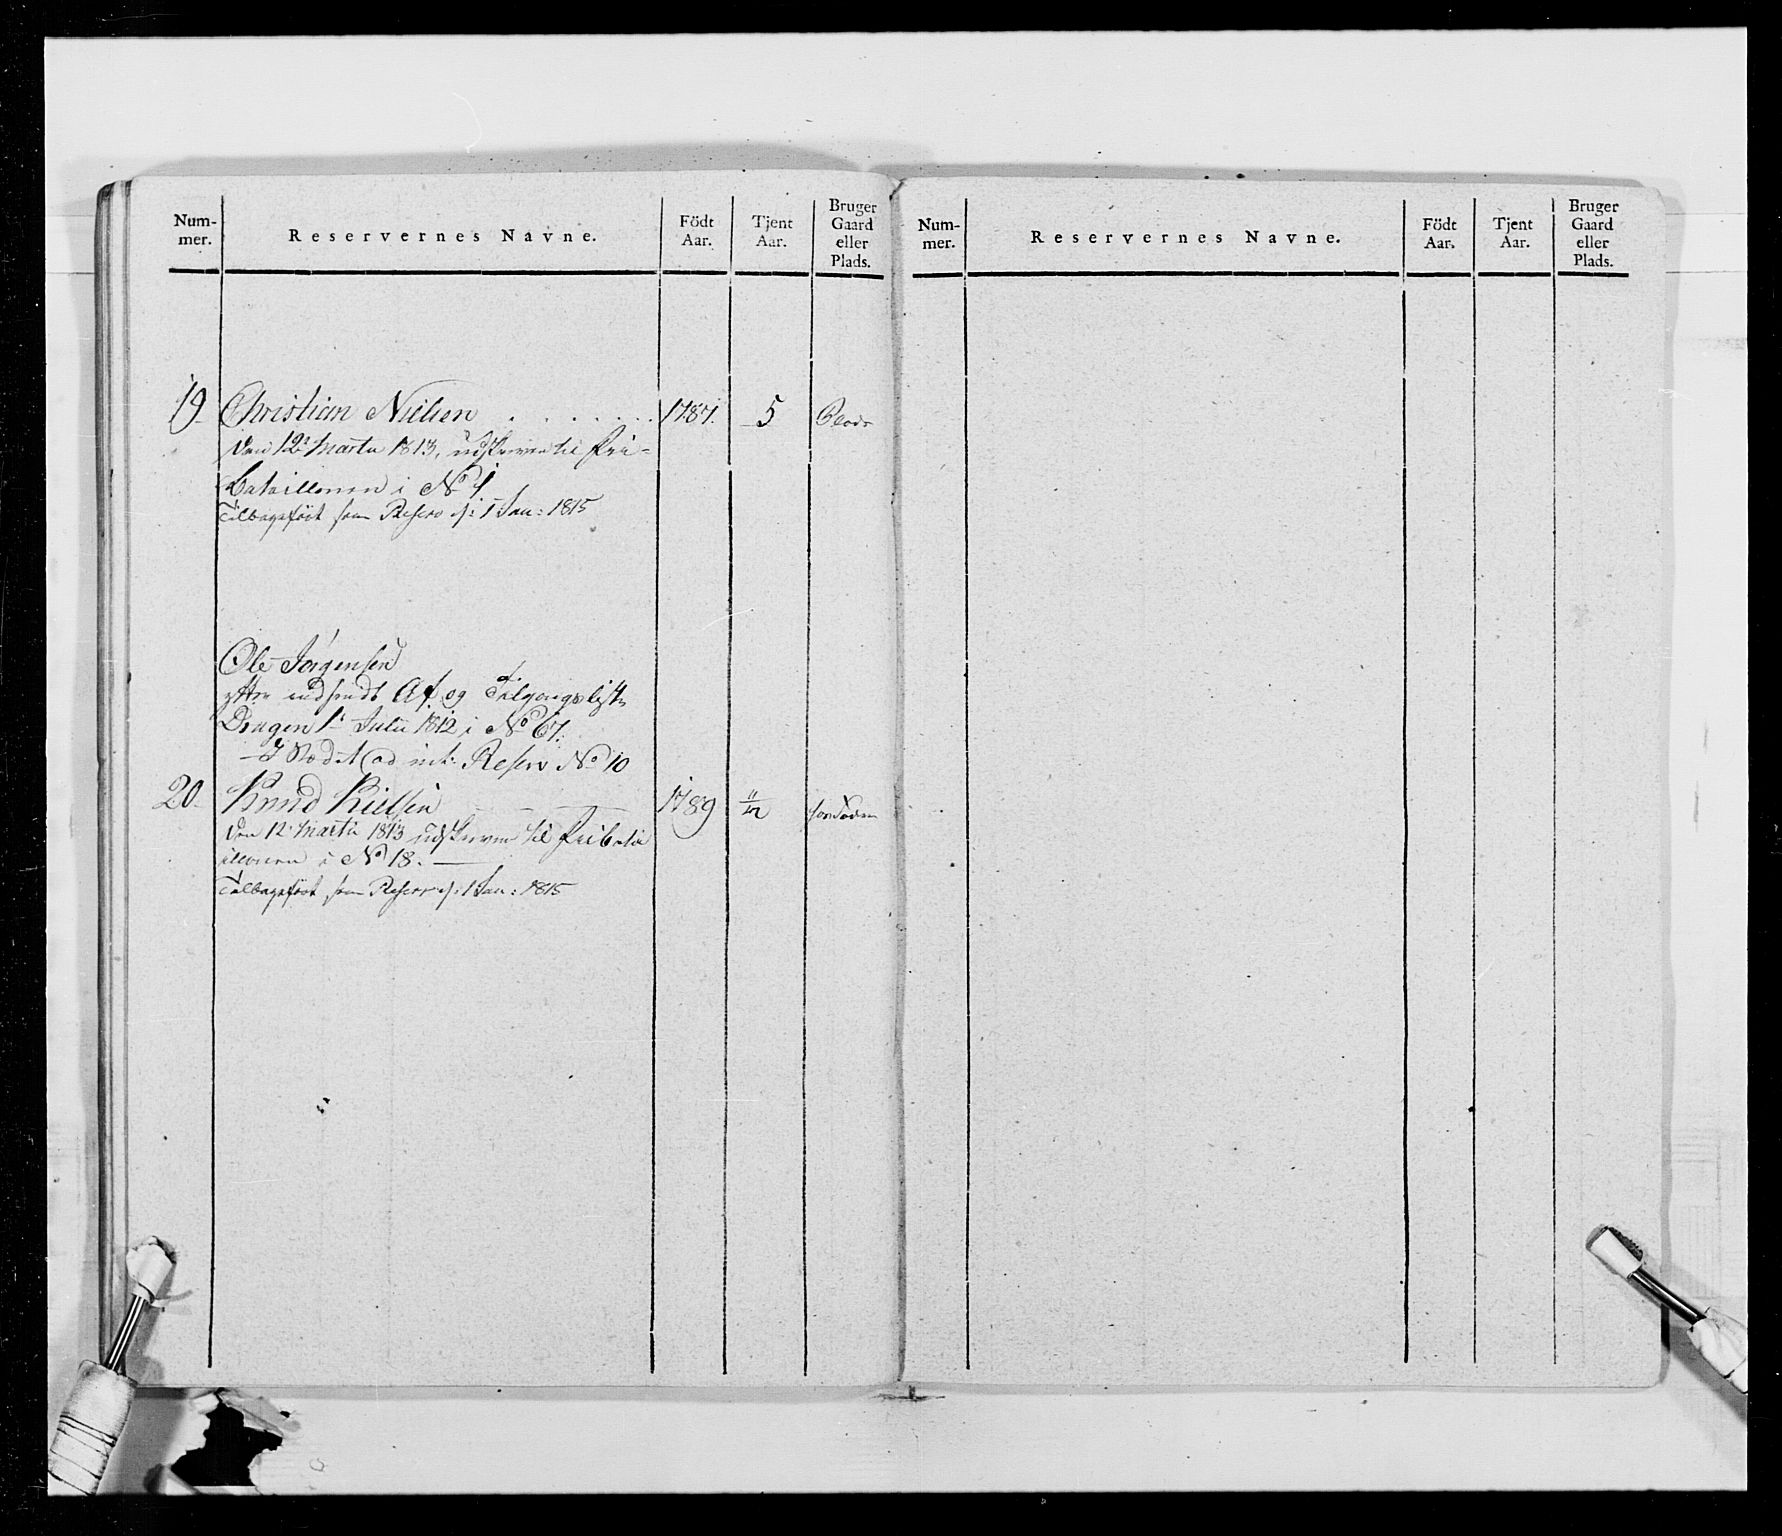 Num-
mer.
Reservernes Navne.
Födt
Aar.
Tjent
Aar.
Bruger
Gaard
eller
Plads.
19. Christian Nielsen 1787. 5 Plads
den 12te Martii 1813, udskreven til Pri-
Bataillonen i No 4
Tilbageført som Reserv 1 Jan: 1815
Ole Jørgensen
efter indsendt Af og Tilgangsliste
Dragon 1e Julii 1812 i No 67.
I Stædet ad int: Reserv No 10
20. Knud Nielsen 1789 11/12
den 12 Martii 1813 udskreven til Pribata
illonen i No 18.
Tilbageført som Reserv 1 Jan: 1815
Num-
mer.
Reservernes Navne.
Födt
Aar.
Tjent
Aar.
Bruger
Gaard
eller
Plads.